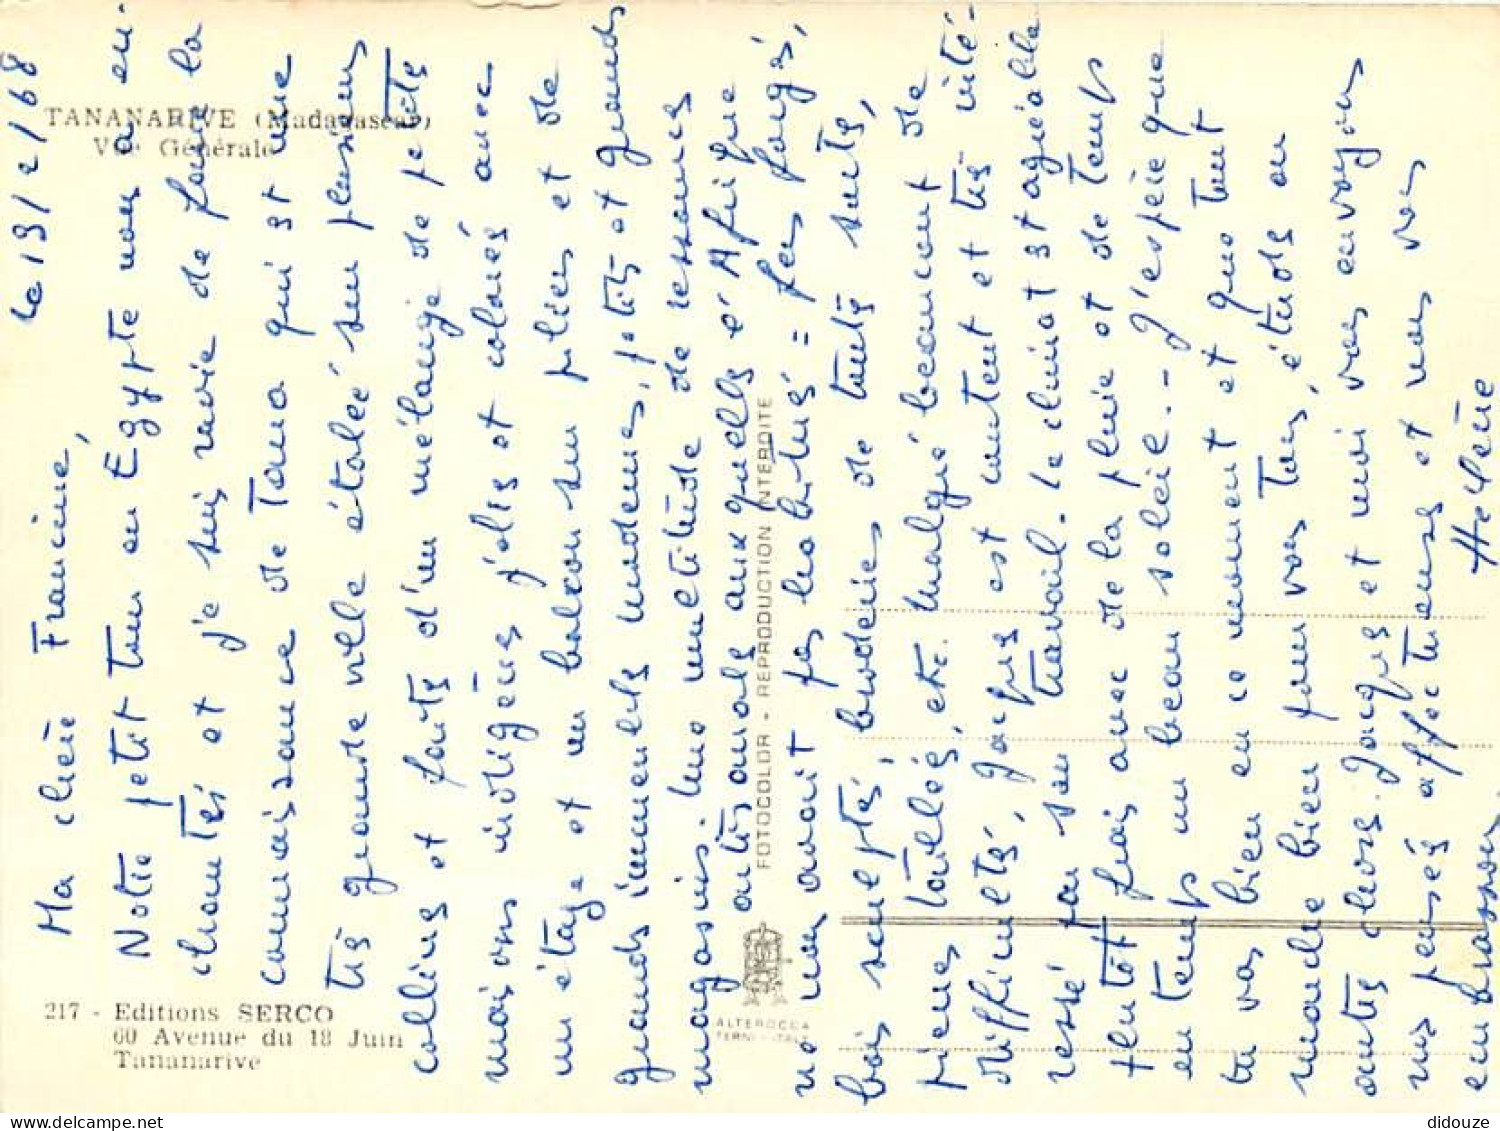 TANANARIVE (Madagascar)
Vue Générale
le 13/2/68
Ma chère Francine,
Notre petit tour en Égypte nous a en-
chantés et je suis ravie de faire la
connaissance de Tana qui est une
très grande ville étalée sur plusieurs
collines et faite d'un mélange de petites
maisons indigènes jolies et colorées avec
un étage et un balcon sur piliers et de
grands immeubles modernes, petits et grands
magasins. Une multitude de
artisanals auxquels l'Afrique
ne nous avait pas habitués = fers forgés,
bois sculptés, broderies de toutes sortes,
pierres taillées, etc. Malgré beaucoup de
difficultés, Jacques est content et très inté-
ressé par son travail. Le climat est agréable
plutôt frais avec de la pluie et de temps
en temps un beau soleil. - J'espère que
tu vas bien en ce moment et que tout
marche bien pour vous tous, études ou
autres choses. Jacques et moi vous envoyons
nos pensées affectueuses et nous vous
embrassons.
Hélène
217 - Editions SERCO
60 Avenue du 18 Juin
Tananarive
FOTOCOLOR - REPRODUCTION INTERDITE
ALTEROCCA
TERNI - ITALY
didouze